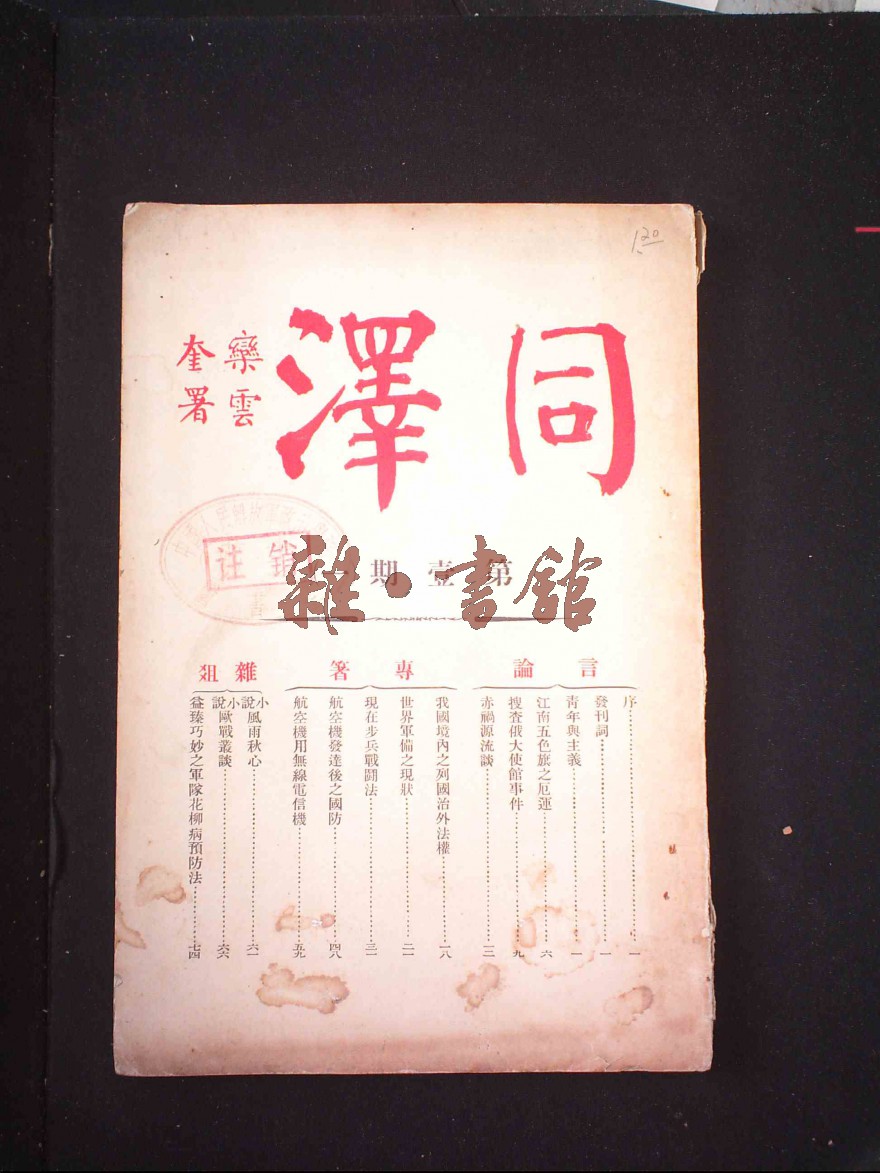 同澤
欒雲
奎署
第壹期
言論
序一
發刊詞一
青年與主義一
江南五色旗之厄運六
搜查俄大使館事件九
赤禍源流談三
專箸
我國境內之列國治外法權一八
世界軍備之現狀二一
現在步兵戰鬪法三一
航空機發達後之國防四八
航空機用無線電信機五九
雜俎
小說風雨秋心六一
小說歐戰叢談六六
益臻巧妙之軍隊花柳病預防法七四
注销
雜·書館
120